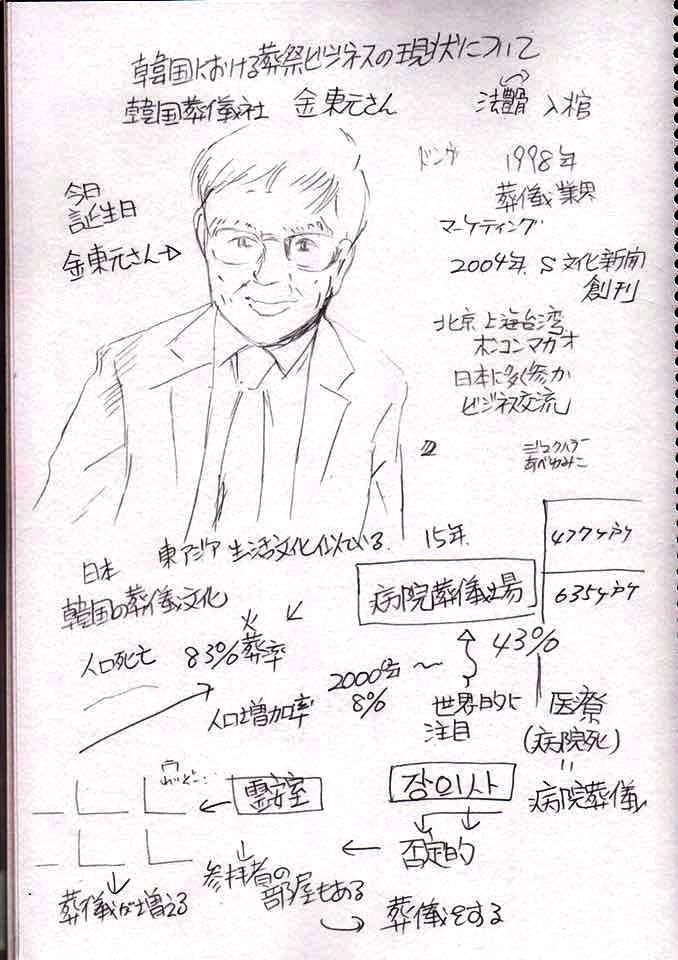 韓国における葬祭ビジネスの現状について
韓国葬儀社 金東元さん
入棺
今日
誕生日
金東元さん→
ドング
1998年
葬儀業界
マーケティング
2004年 S文化新聞
創刊
北京上海台湾
ホンコンマカオ
日本に多く参加
ビジネス交流
日本 東アジア 生活文化似ている 15年
韓国の葬儀文化
病院葬儀場
477ヶ所
635ヶ所
43%
人口死亡 83% 火葬率
人口増加率
8%
世界的に
注目
医療
(病院死)
〃
病院葬儀
霊安室
장의사
否定的
参拝者の
部屋もある
葬儀が増える
葬儀をする